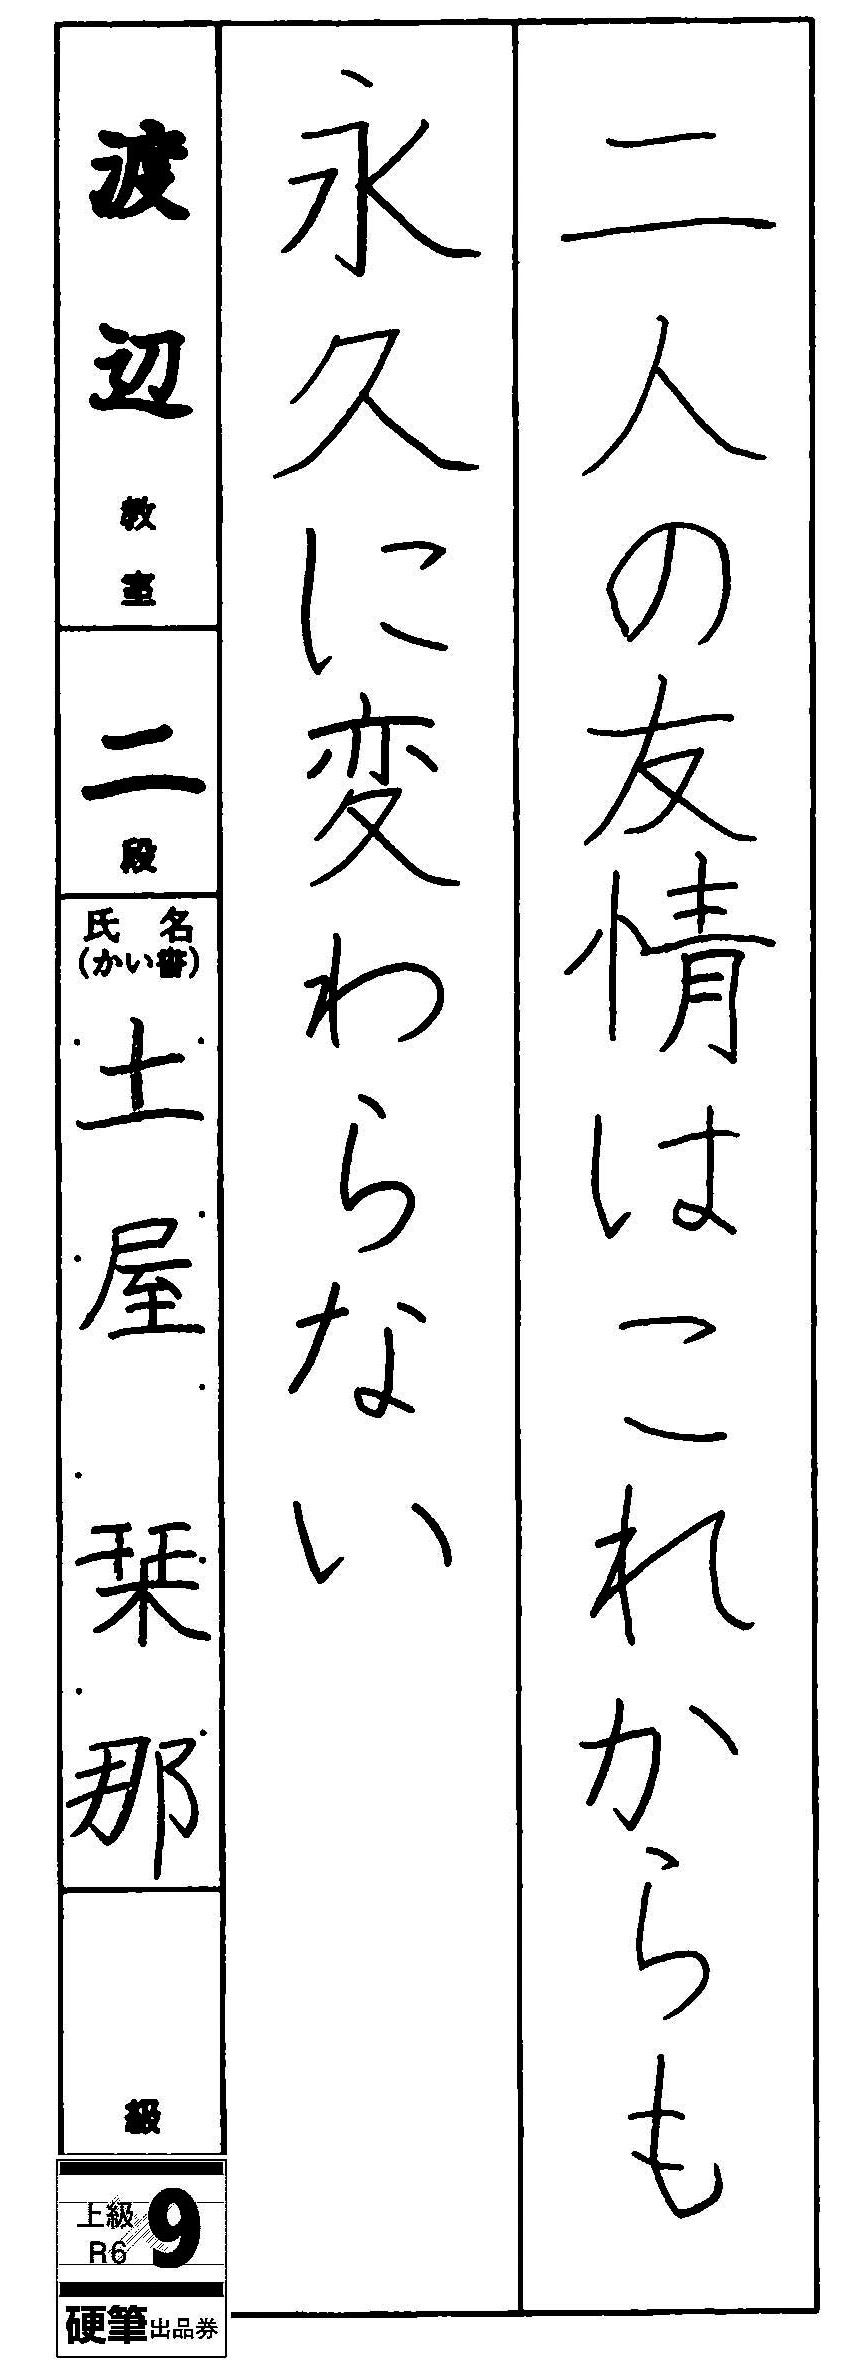 二人の友情はこれからも
永久に変わらない
渡辺教室
二段
氏名
(かい書)
土屋栞那
級
上級
R6
9
硬筆出品券